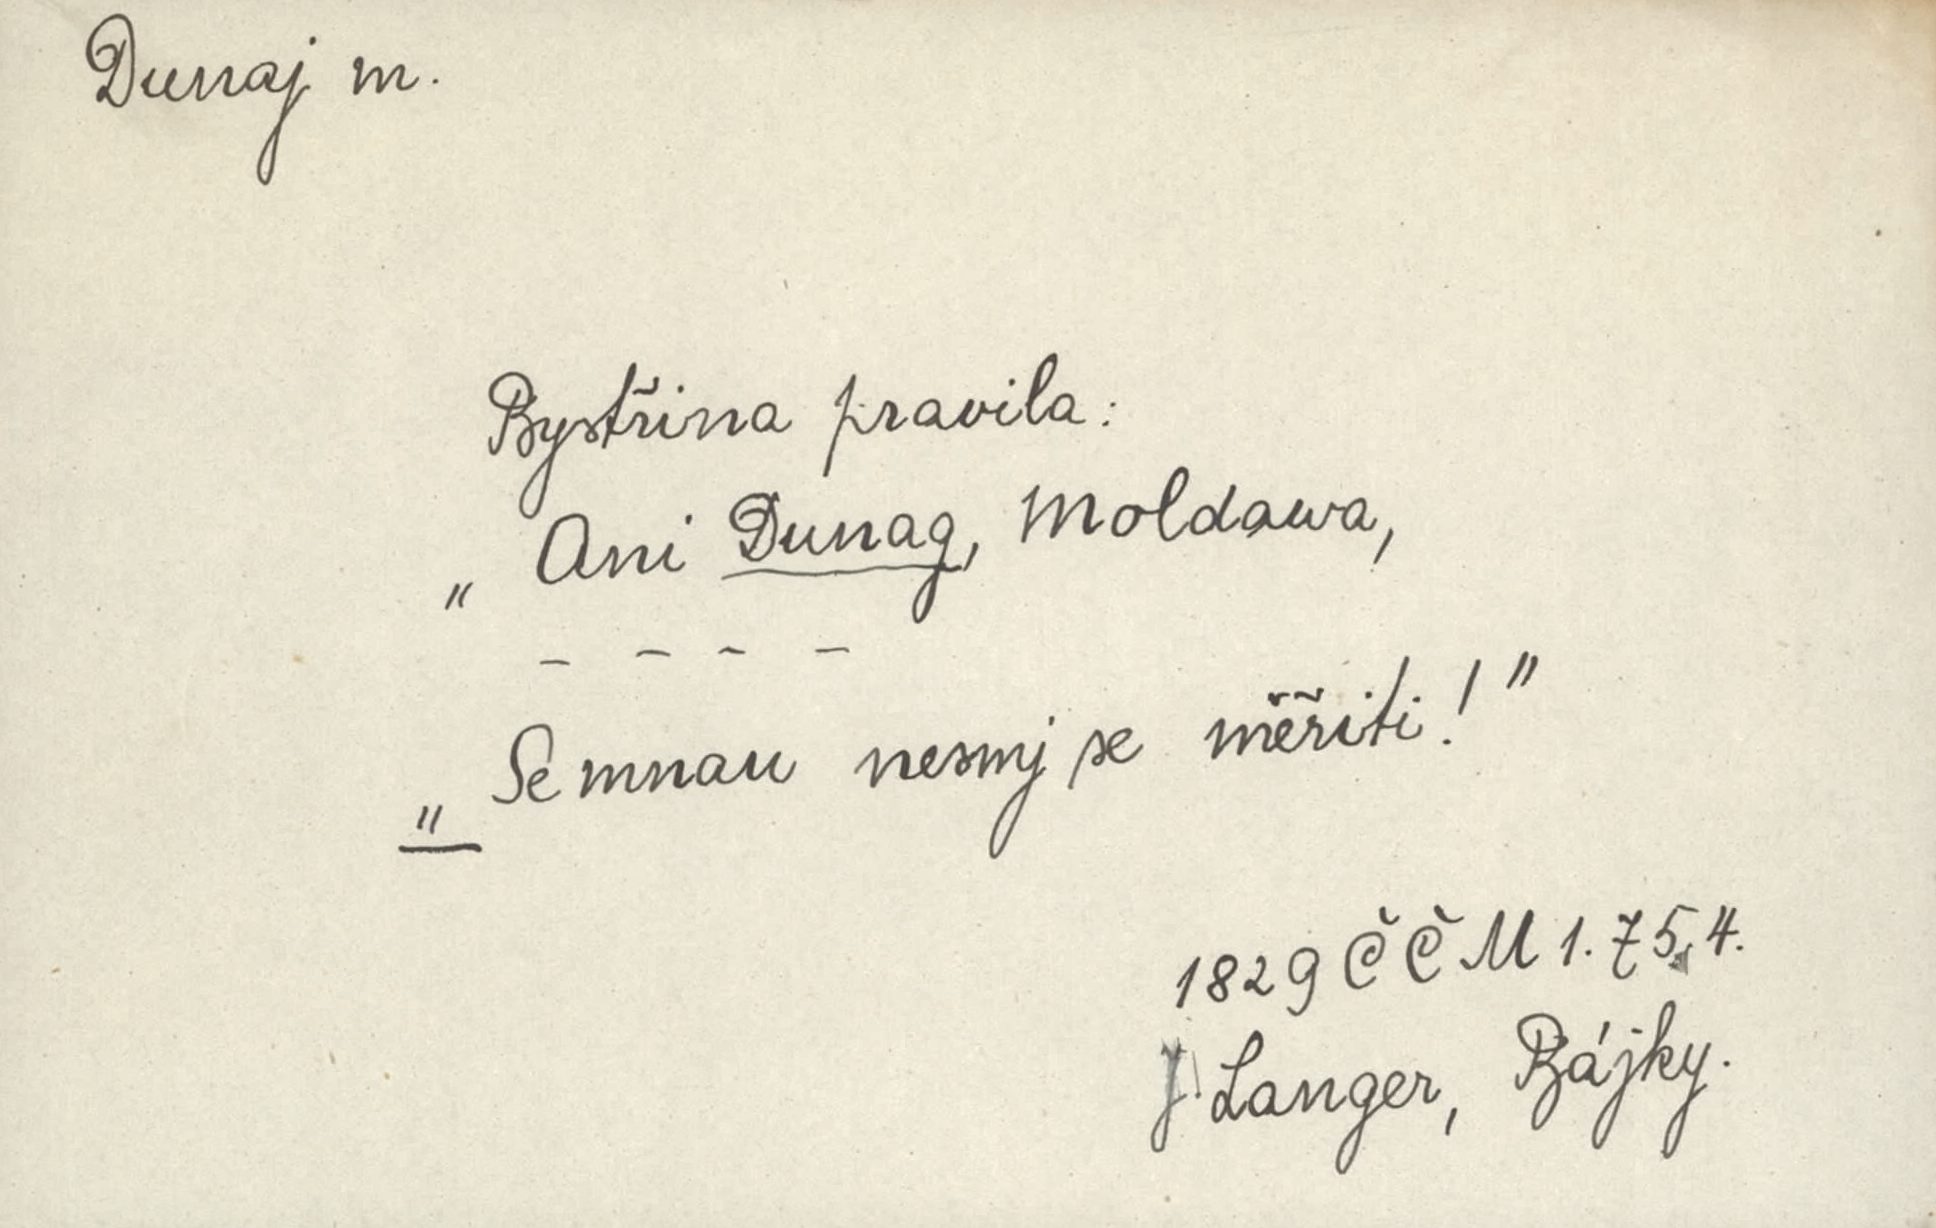 Dunaj m.
Bystřina pravila:
„ Ani Dunag, Moldawa,
– – – –
„ Se mnau nesmj se měřiti!"
1829 ČČM 1.75,4.
J. Langer, Bájky.